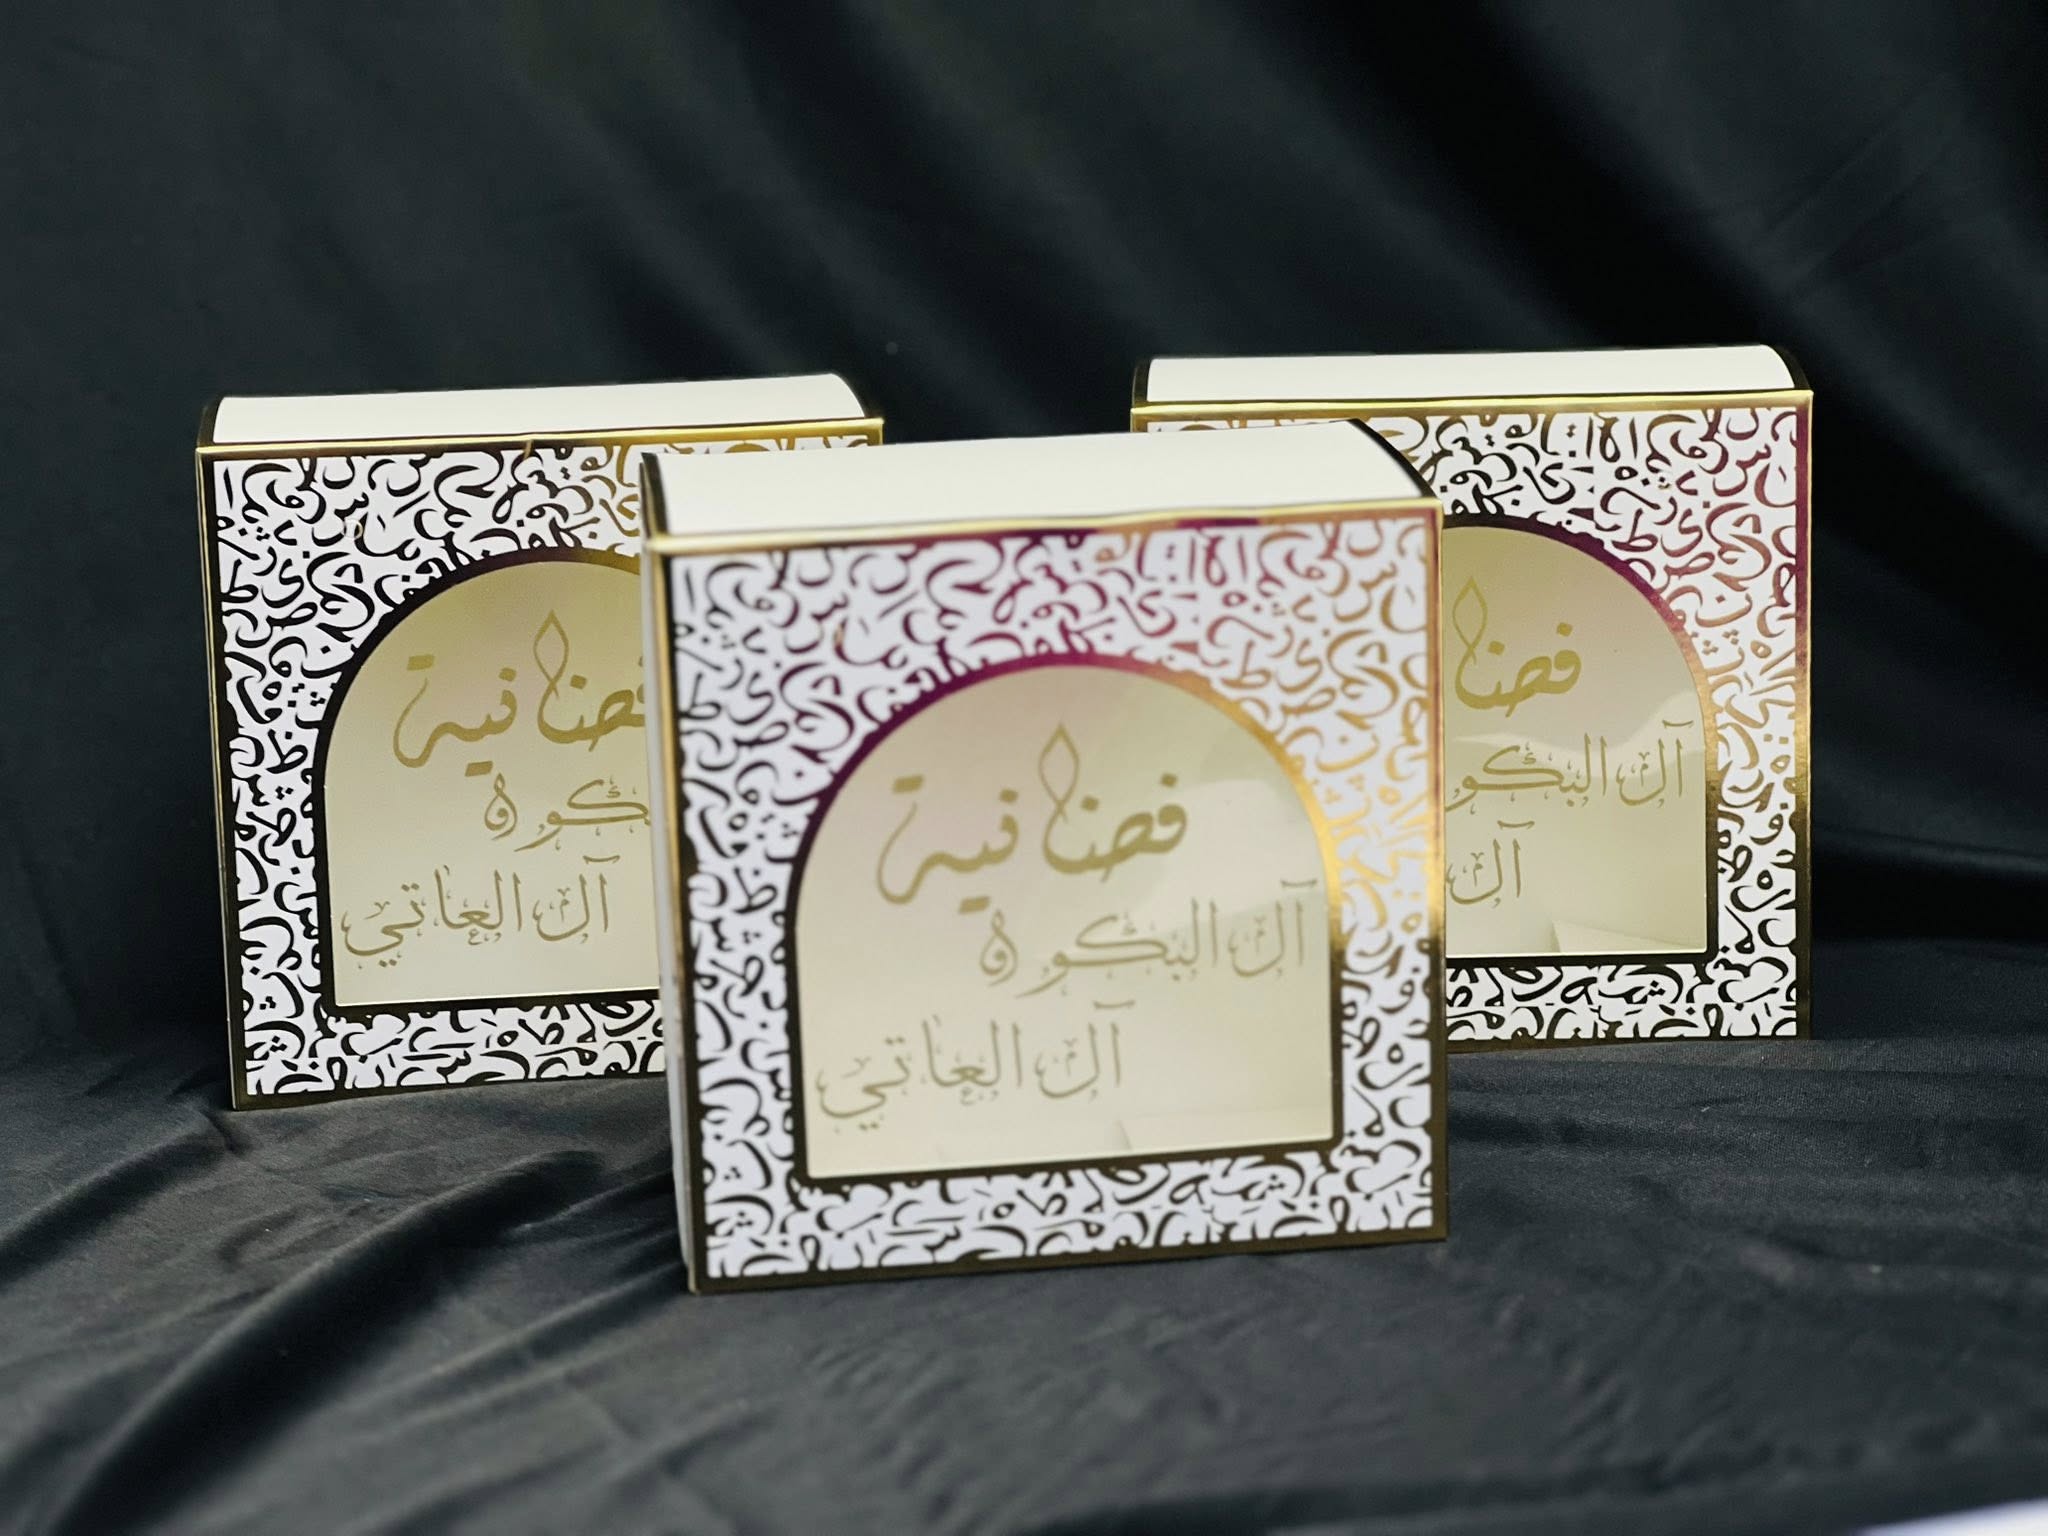 فضانية
آل البكوة
آل العاتي
فضانية
كوة
آل العاتي
فضا
آل البكو
آل